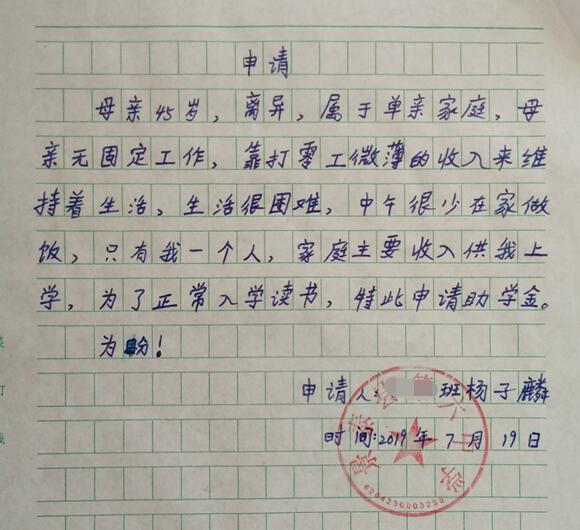 申请
母亲45岁，离异，属于单亲家庭，母
亲无固定工作，靠打零工微薄的收入来维
持着生活、生活很困难，中午很少在家做
饭，只有我一个人，家庭主要收入供我上
学，为了正常入学读书，特此申请助学金。
为盼！
申请人：班杨子麟
时间：2019年7月19日
景泰县第六中学
6204230003250